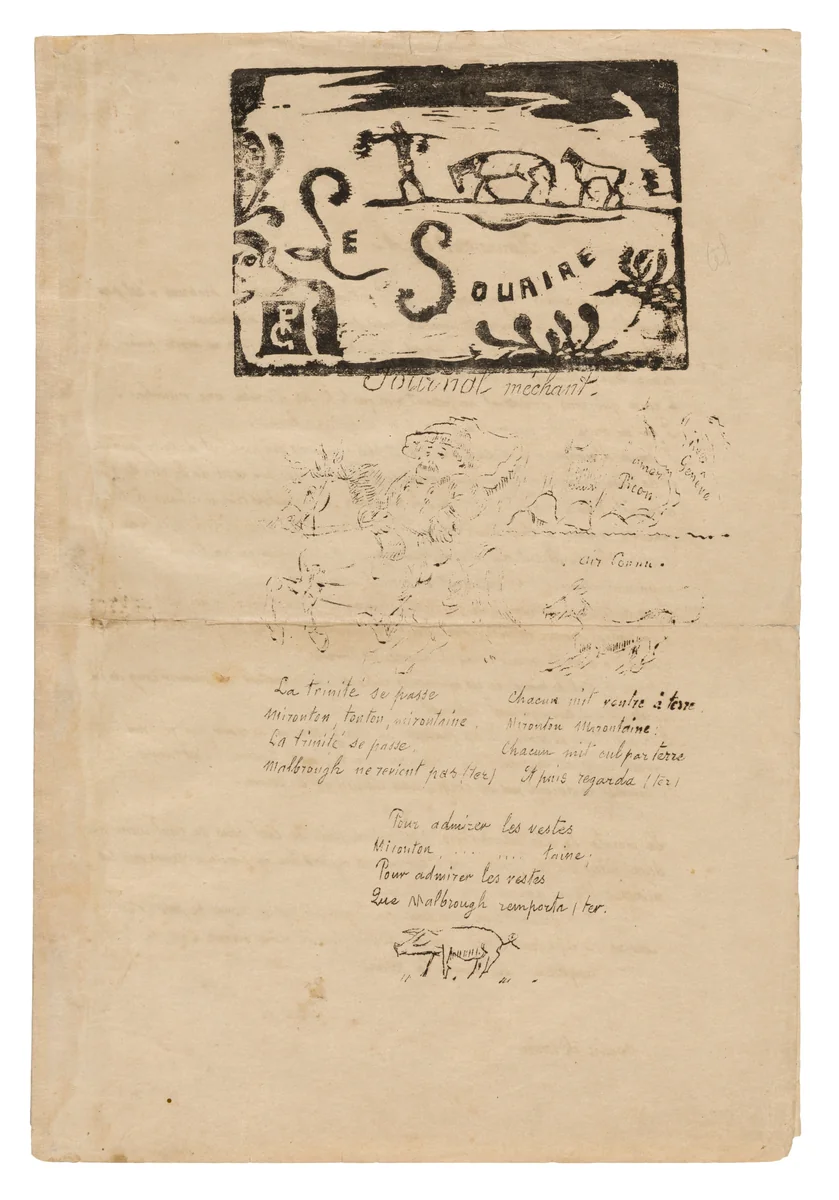 LE
SOURIRE
PG
Journal méchant.
amer
Picon
Genève
Air Connu.
La trinité se passe
Mironton, tonton, mirontaine.
La trinité se passe.
Malbrough ne revient pas (ter)
Chacun mit ventre à terre.
Mironton Mirontaine;
Chacun mit cul par terre
Et puis regarda (ter)
Pour admirer les vestes
Mironton ... .... taine;
Pour admirer les vestes
Que Malbrough remporta (ter.